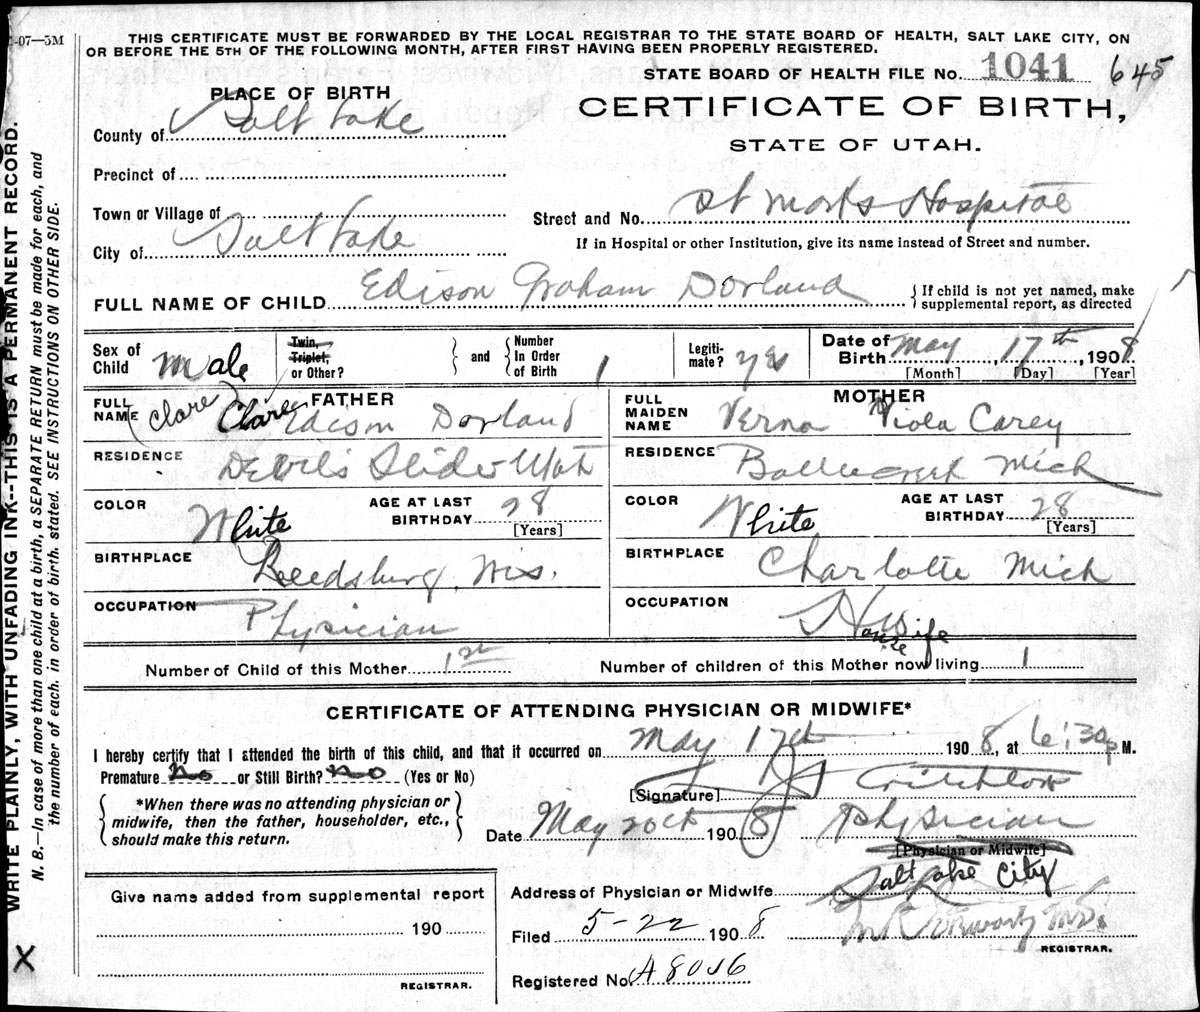 -07—3M
THIS CERTIFICATE MUST BE FORWARDED BY THE LOCAL REGISTRAR TO THE STATE BOARD OF HEALTH, SALT LAKE CITY, ON
OR BEFORE THE 5TH OF THE FOLLOWING MONTH, AFTER FIRST HAVING BEEN PROPERLY REGISTERED.
STATE BOARD OF HEALTH FILE No. 1041 645
PLACE OF BIRTH
CERTIFICATE OF BIRTH,
STATE OF UTAH.
County of Salt Lake
Precinct of
Town or Village of
Street and No. St Marks Hospital
City of Salt Lake
If in Hospital or other Institution, give its name instead of Street and number.
FULL NAME OF CHILD Edison Graham Dorland
{ If child is not yet named, make
supplemental report, as directed
Sex of Child Male
Twin, Triplet, or Other?
and
Number In Order of Birth 1
Legiti- mate? yes
Date of Birth May, 17th, 1908
[Month] [Day] [Year]
FATHER
FULL NAME (Clare) Claire Edison Dorland
MOTHER
FULL MAIDEN NAME Verna Viola Carey
RESIDENCE Devils Slide Utah
RESIDENCE Battlecreek Mich
COLOR White
AGE AT LAST BIRTHDAY 28
[Years]
COLOR White
AGE AT LAST BIRTHDAY 28
[Years]
BIRTHPLACE Reedsburg, Wis.
BIRTHPLACE Charlotte Mich
OCCUPATION Physician
OCCUPATION House Wife
Number of Child of this Mother 1st
Number of children of this Mother now living 1
CERTIFICATE OF ATTENDING PHYSICIAN OR MIDWIFE*
I hereby certify that I attended the birth of this child, and that it occurred on May 17th 1908, at 6:30 p M.
Premature No or Still Birth? No (Yes or No)
{ *When there was no attending physician or
midwife, then the father, householder, etc.,
should make this return. }
[Signature] Critchlow
Date May 20th 1908 Physician
[Physician or Midwife]
Address of Physician or Midwife Salt Lake City
Filed 5-22 1908
M.D.
REGISTRAR.
Registered No. A 8006
Give name added from supplemental report
190
REGISTRAR.
WRITE PLAINLY, WITH UNFADING INK--THIS IS A PERMANENT RECORD.
N. B.—In case of more than one child at a birth, a SEPARATE RETURN must be made for each, and
the number of each, in order of birth, stated. SEE INSTRUCTIONS ON OTHER SIDE.
X